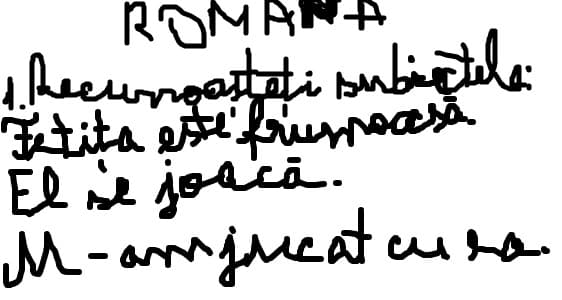 ROMANA
1. Recunoasteti subiectele:
Fetita este frumoasă.
El se joacă.
M-am jucat cu ea.